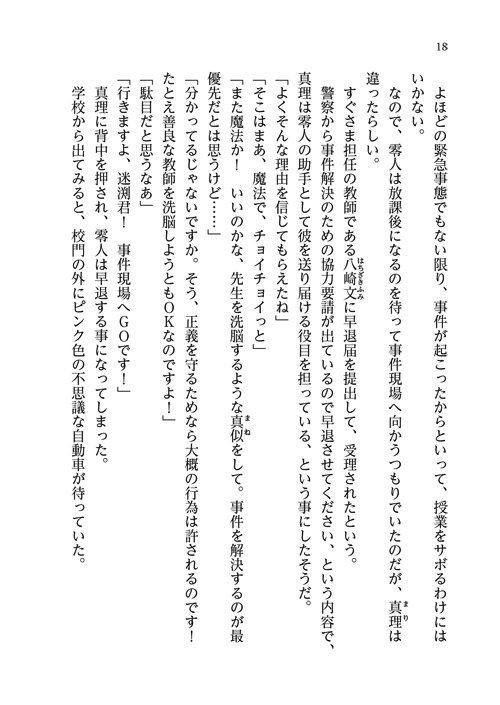 18
よほどの緊急事態でもない限り、事件が起こったからといって、授業をサボるわけには
いかない。
なので、零人は放課後になるのを待って事件現場へ向かうつもりでいたのだが、真理は
まり
違ったらしい。
すぐさま担任の教師である八崎文に早退届を提出して、受理されたという。
はちざきふみ
警察から事件解決のための協力要請が出ているので早退させてください、という内容で、
真理は零人の助手として彼を送り届ける役目を担っている、という事にしたそうだ。
「よくそんな理由を信じてもらえたね」
「そこはまあ、魔法で、チョイチョイっと」
「また魔法か！　いいのかな、先生を洗脳するような真似をして。事件を解決するのが最
まね
優先だとは思うけど……」
「分かってるじゃないですか。そう、正義を守るためなら大概の行為は許されるのです！
たとえ善良な教師を洗脳しようともＯＫなのですよ！」
「駄目だと思うなあ」
「行きますよ、迷渕君！　事件現場へＧＯです！」
真理に背中を押され、零人は早退する事になってしまった。
学校から出てみると、校門の外にピンク色の不思議な自動車が待っていた。